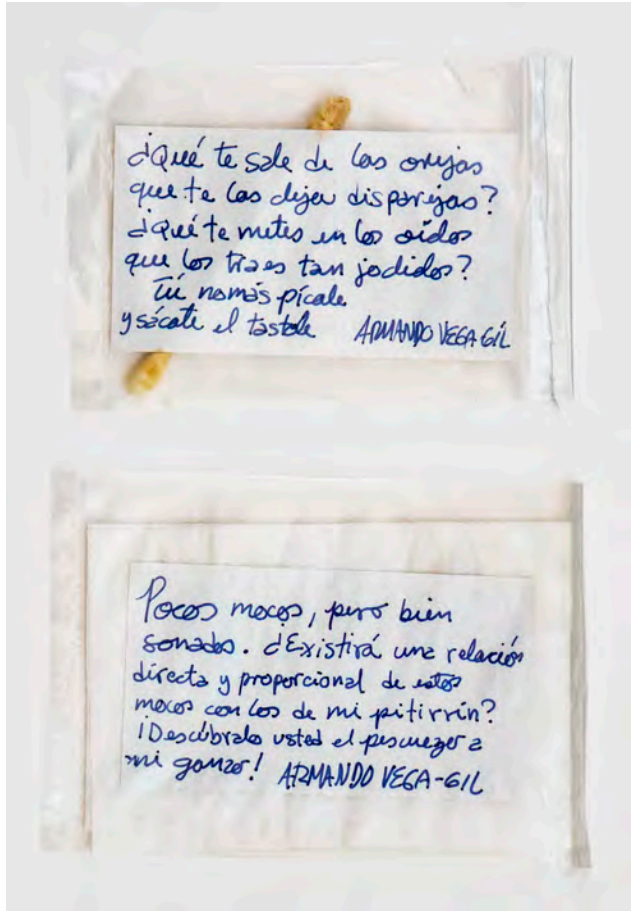 ¿Qué te sale de las orejas
que te las deja disparejas?
¿Qué te metes en los oídos
que los traes tan jodidos?
Tú nomás pícale
y sácate el tastole ARMANDO VEGA GIL
Pocos mocos, pero bien
sonados. ¿Existirá una relación
directa y proporcional de estos
mocos con los de mi pitirrín?
¡Descúbralo usted el pescuezo a
mi ganzo! ARMANDO VEGA-GIL